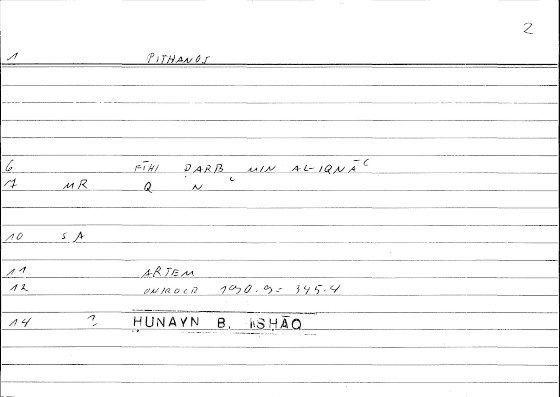 2
1 PITHANOS
6 FĪHI ḌARB MIN AL-IQNĀʿ
7 MR Q Nʿ
10 S A
11 ARTEM
12 ONIROCR 190.9 = 345.4
14 ? ḤUNAYN B. ISḤĀQ